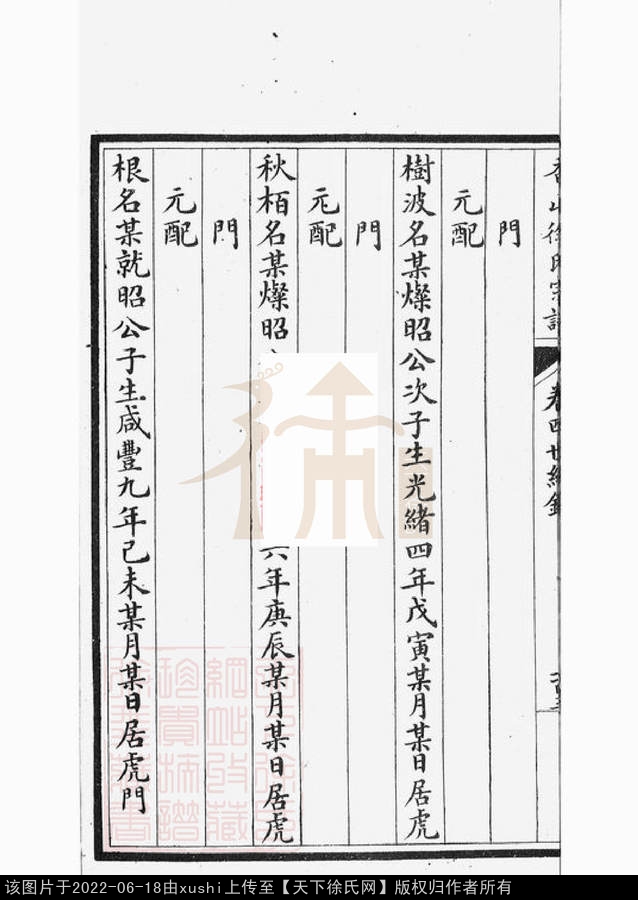 樹波名某燦昭公次子生光緒四年戊寅某月某日居虎
門
元配
秋栢名某燦昭
六年庚辰某月某日居虎
門
元配
根名某就昭公子生咸豐九年己未某月某日居虎門
元配
门
该图片于2022-06-18由xushi上传至【天下徐氏网】版权归作者所有